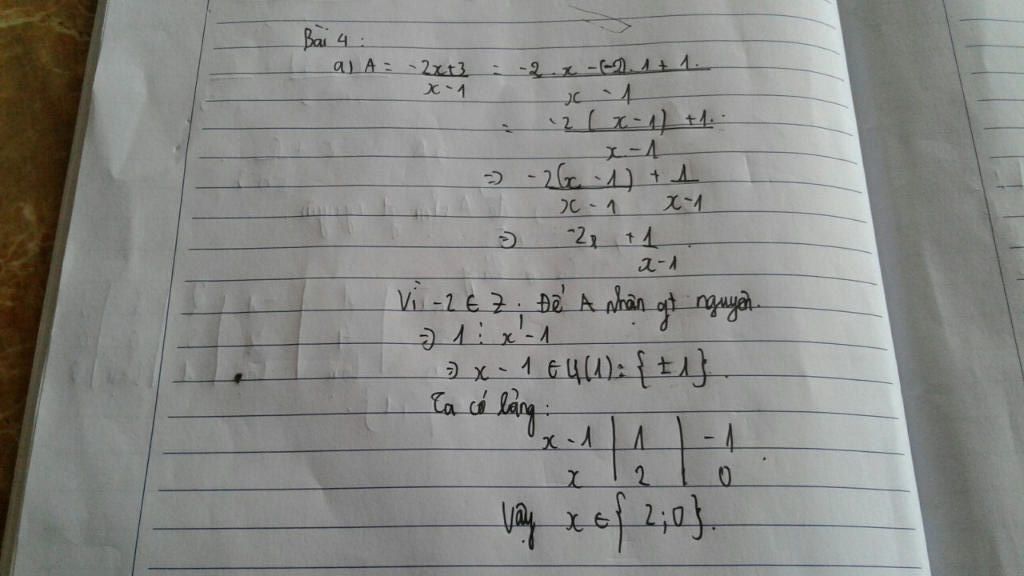 Bài 4 :
a) A = -2x+3 / x-1 = -2 . x - (-2) . 1 + 1 / x - 1
= -2 ( x-1) +1 / x-1
=> -2(x - 1) / x - 1 + 1 / x-1
=> -2 + 1 / x-1
Vì -2 ∈ Z . Để A nhận gt nguyên.
=> 1 ⋮ x - 1
=> x - 1 ∈ Ư(1) = { ± 1 } .
Ta có bảng :
x - 1 | 1 | - 1
x | 2 | 0
Vậy x ∈ { 2 ; 0 } .